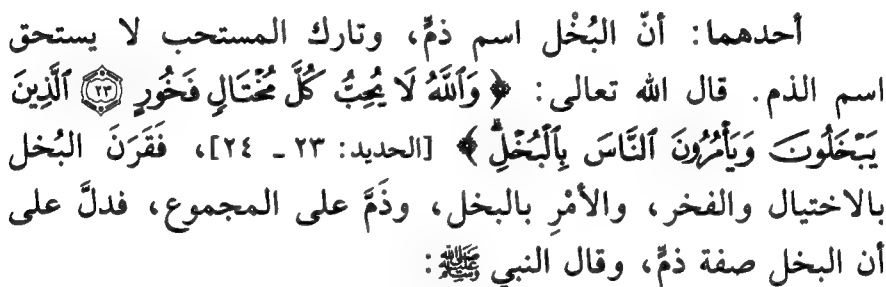 أحدهما: أنّ البُخْل اسم ذمٍّ، وتارك المستحب لا يستحق
اسم الذم. قال الله تعالى: ﴿وَٱللَّهُ لَا يُحِبُّ كُلَّ مُخْتَالٍ فَخُورٍ ۝٢٣ ٱلَّذِينَ
يَبْخَلُونَ وَيَأْمُرُونَ ٱلنَّاسَ بِٱلْبُخْلِۗ﴾ [الحديد: ٢٣ ـ ٢٤]، فَقَرَنَ البُخل
بالاختيال والفخر، والأمْرِ بالبخل، وذَمَّ على المجموع، فدلَّ على
أن البخل صفة ذمٍّ، وقال النبي ﷺ: